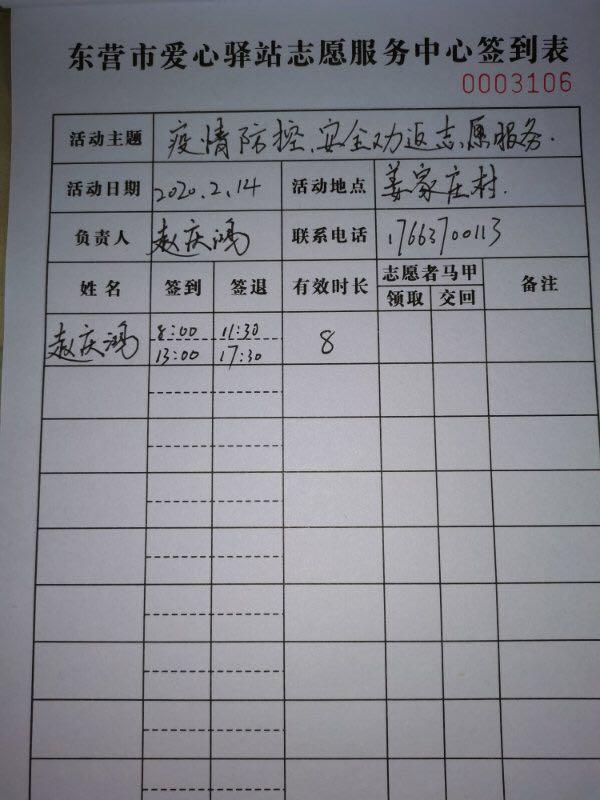 东营市爱心驿站志愿服务中心签到表
0003106
活动主题 疫情防控、安全劝返志愿服务.
活动日期 2020.2.14 活动地点 姜家庄村.
负责人 赵庆鸿 联系电话 17663700113
姓名 签到 签退 有效时长 志愿者马甲 备注
领取 交回
赵庆鸿 8:00 11:30 8
13:00 17:30